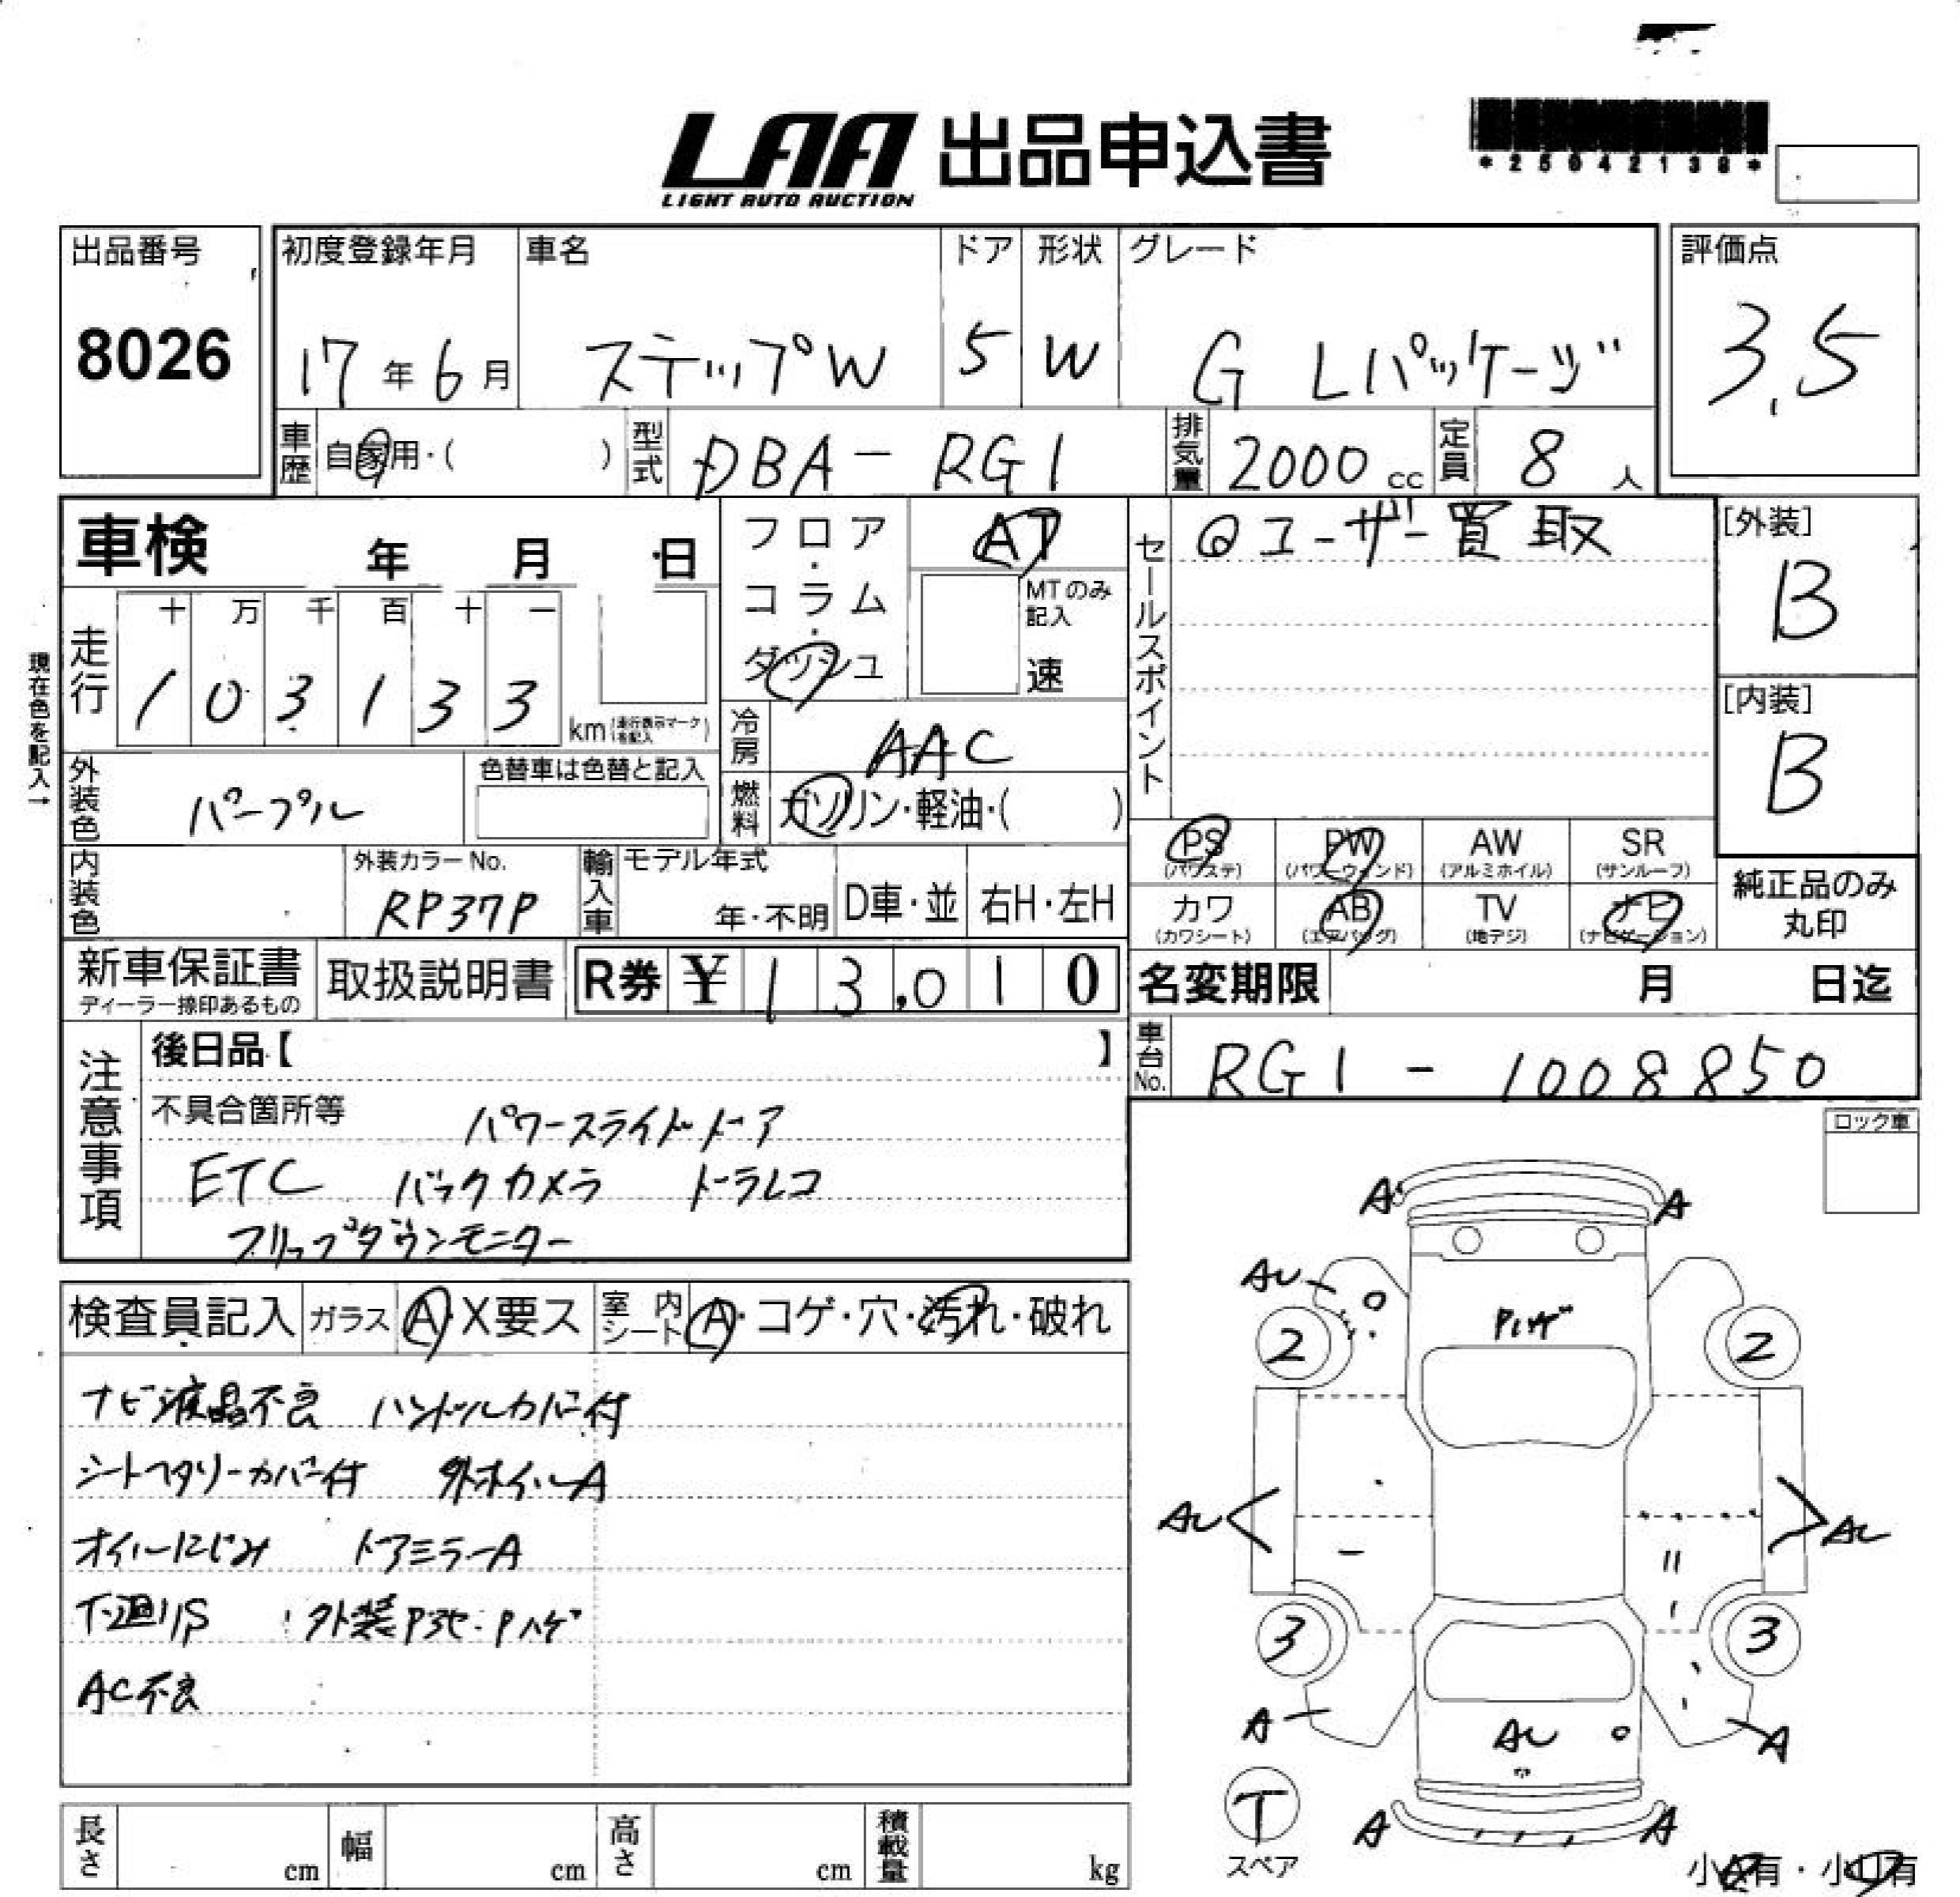 LAA 出品申込書
LIGHT AUTO AUCTION
*25042138*
出品番号 初度登録年月 車名 ドア 形状 グレード 評価点
8026 17年6月 ステップW 5 W G Lパッケージ 3.5
車歴 自家用・( ) 型式 DBA-RG1 排気量 2000cc 定員 8人
車検 年 月 日 フロア・コラム・ダッシュ AT セールスポイント @ユーザー買取 [外装]
B
MTのみ記入
速
現在色を記入→
走行 十 万 千 百 十 一
1 0 3 1 3 3 km (走行表示マークを記入)
[内装]
B
冷房 AAC
外装色 パープル 色替車は色替と記入 燃料 ガソリン・軽油・( )
PS (パワステ) PW (パワーウィンド) AW (アルミホイル) SR (サンルーフ)
内装色 外装カラーNo. RP37P 輸入車 モデル年式 年・不明 D車・並 右H・左H
カワ (カワシート) AB (エアバッグ) TV (地デジ) ナビ (ナビゲーション) 純正品のみ丸印
新車保証書 ディーラー捺印あるもの 取扱説明書 R券 ¥13,010 名変期限 月 日迄
車台No. RG1-1008850
注意事項 後日品【 】
不具合箇所等 パワースライドドア
ETC バックカメラ ドラレコ
フリップダウンモニター
ロック車
検査員記入 ガラス A・X要ス 室内シート A・コゲ・穴・汚れ・破れ
ナビ液晶不良 ハンドルカバー付
シートステリーカバー付 外ホイルA
オイルにじみ ドアミラーA
下廻りS 外装P劣・Pハゲ
AC不良
A A
AU Pハゲ
2 2
AU AU
3 3
A AU A
T
スペア
A A
長さ cm 幅 cm 高さ cm 積載量 kg
小A有・小U有